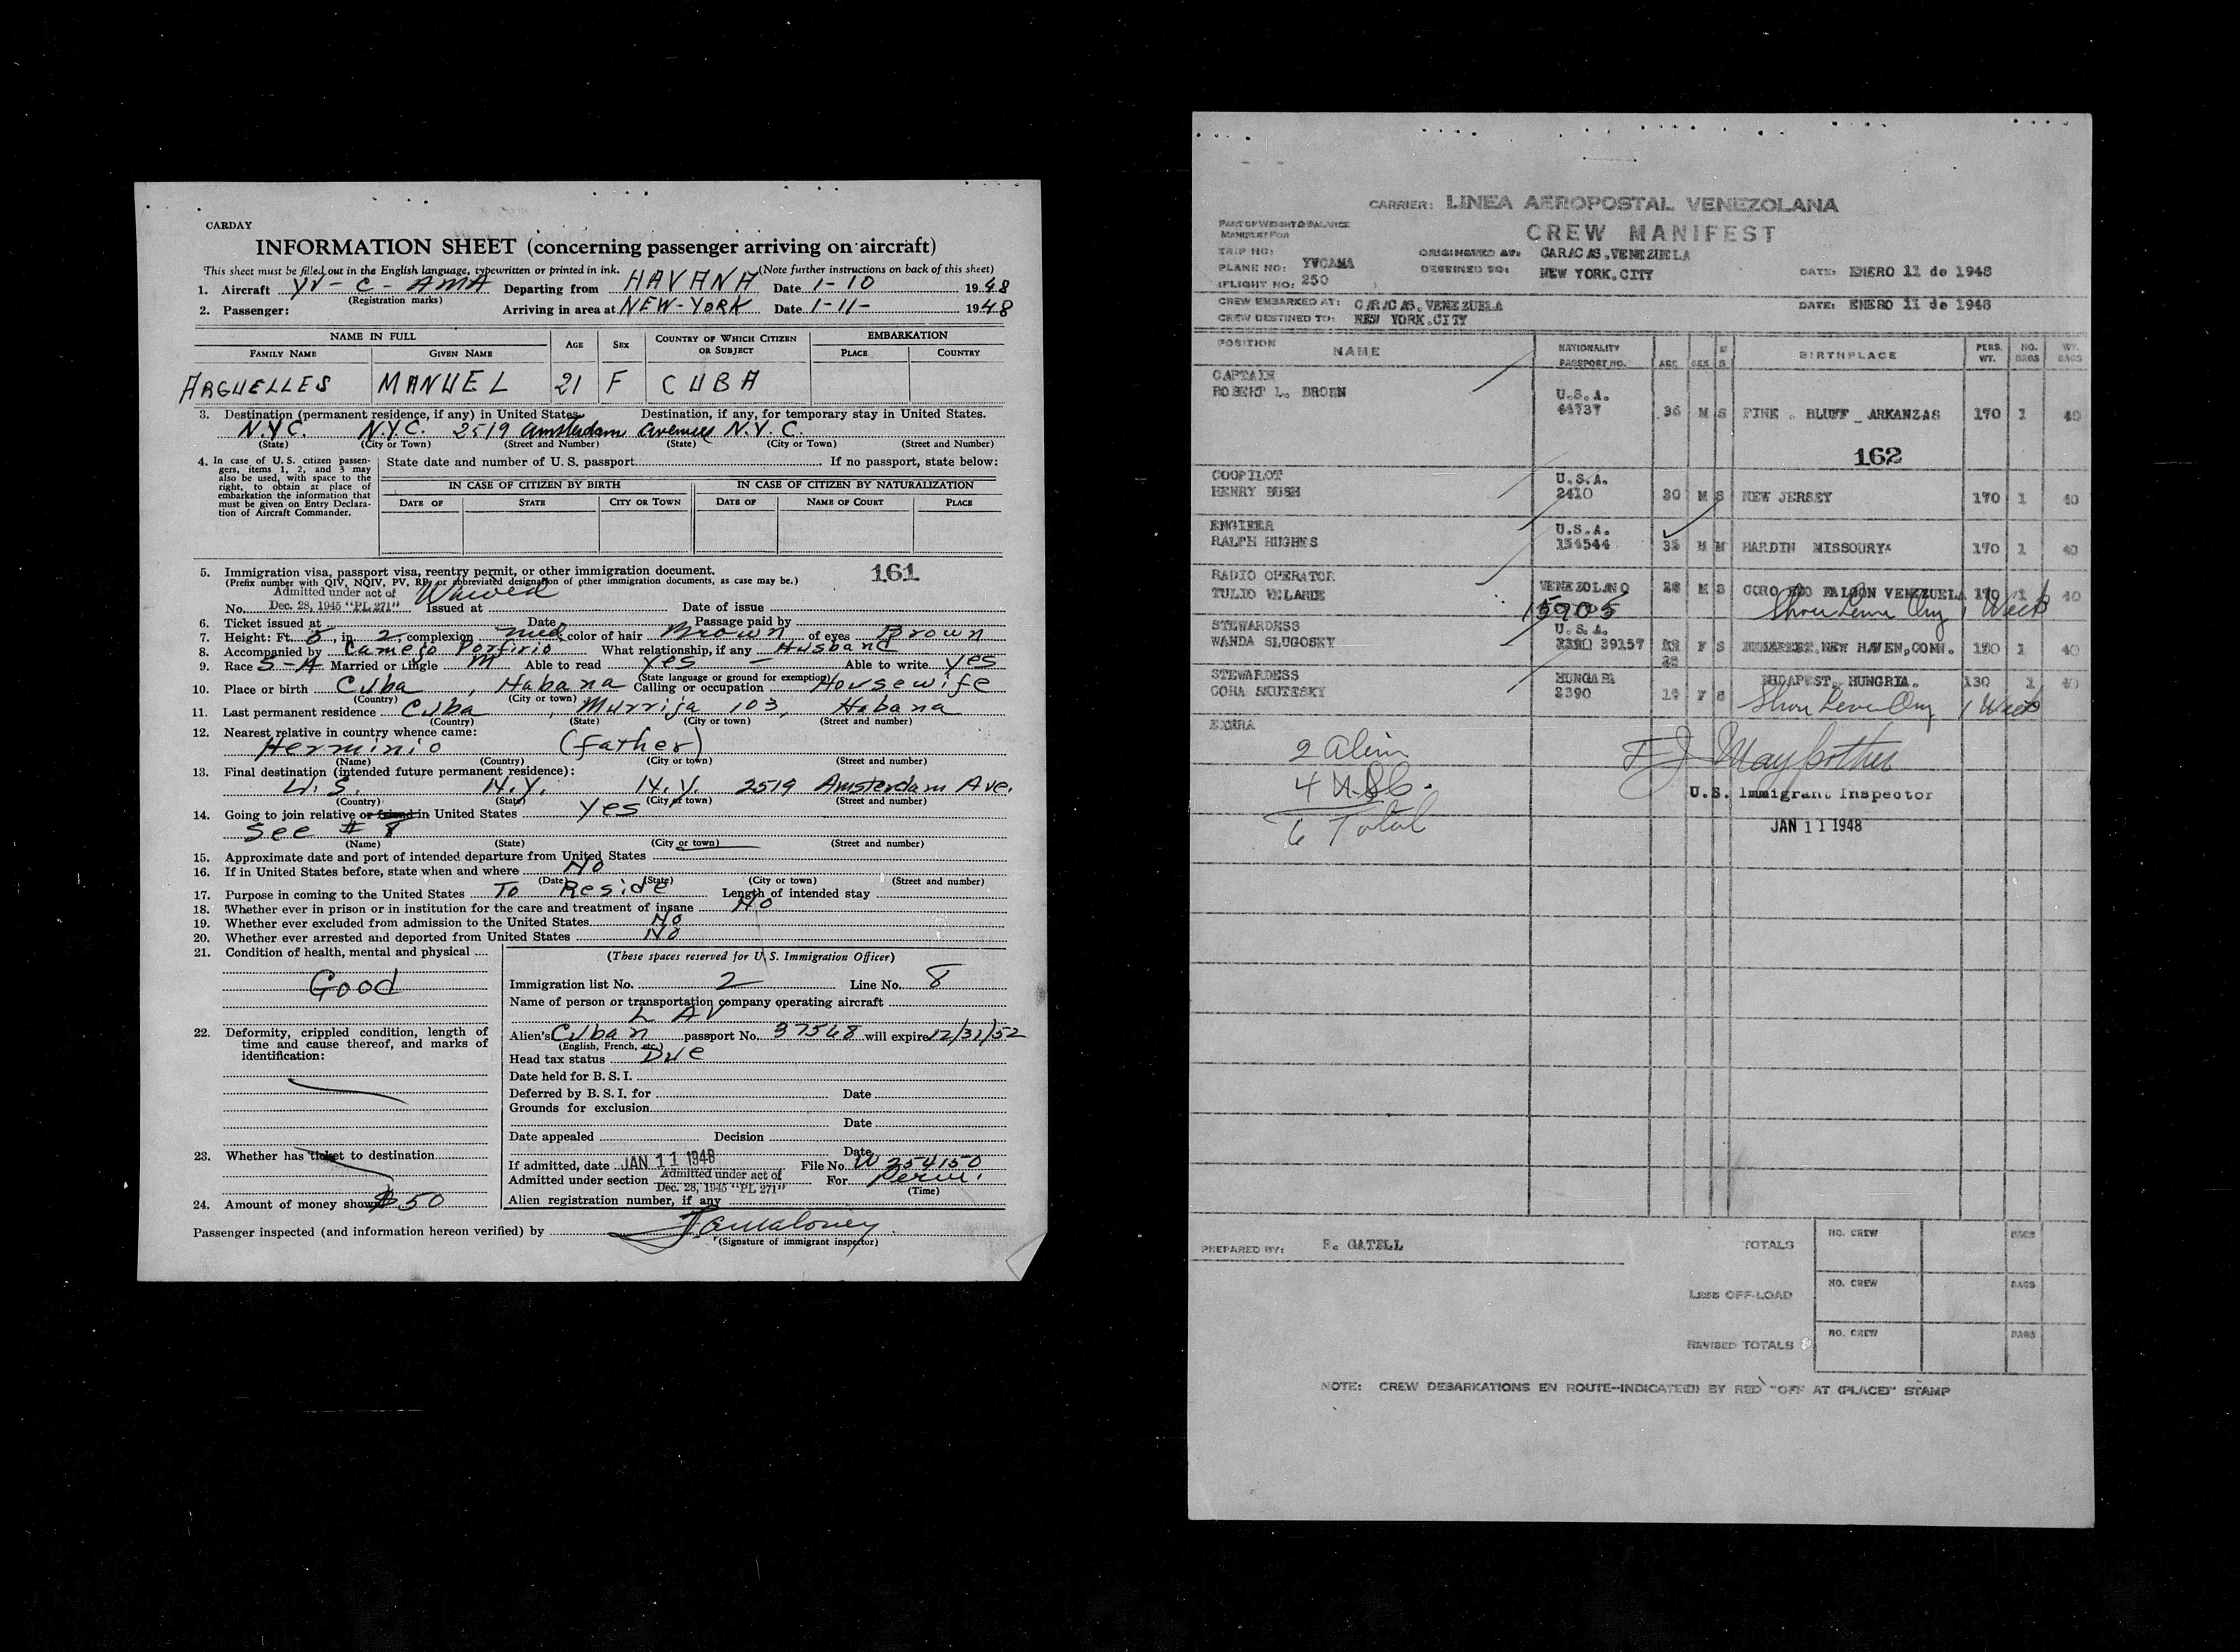 CARDAY
INFORMATION SHEET (concerning passenger arriving on aircraft)
This sheet must be filled out in the English language, typewritten or printed in ink. (Note further instructions on back of this sheet)
1. Aircraft YV-C-AMA Departing from HAVANA Date 1-10 1948
(Registration marks)
2. Passenger: Arriving in area at NEW-YORK Date 1-11- 1948
NAME IN FULL AGE SEX COUNTRY OF WHICH CITIZEN OR SUBJECT EMBARKATION
FAMILY NAME GIVEN NAME PLACE COUNTRY
ARGUELLES MANUEL 21 F CUBA
3. Destination (permanent residence, if any) in United States. Destination, if any, for temporary stay in United States.
N.Y.C. N.Y.C. 2519 Amsterdam Avenue N.Y.C.
(State) (City or Town) (Street and Number) (State) (City or Town) (Street and Number)
4. In case of U. S. citizen passengers, items 1, 2, and 3 may also be used, with space to the right, to obtain at place of embarkation the information that must be given on Entry Declaration of Aircraft Commander.
State date and number of U. S. passport If no passport, state below:
IN CASE OF CITIZEN BY BIRTH IN CASE OF CITIZEN BY NATURALIZATION
DATE OF STATE CITY OR TOWN DATE OF NAME OF COURT PLACE
5. Immigration visa, passport visa, reentry permit, or other immigration document. 161
(Prefix number with QIV, NQIV, PV, RP, or abbreviated designation of other immigration documents, as case may be.)
Admitted under act of Waived
No. Dec. 28, 1945 "PL 271" Issued at Date of issue
6. Ticket issued at Date Passage paid by
7. Height: Ft. 5, in. 2, complexion med color of hair Brown of eyes Brown
8. Accompanied by Camejo Porfirio What relationship, if any Husband
9. Race S-A Married or single M Able to read yes - Able to write yes
(State language or ground for exemption)
10. Place or birth Cuba, Habana Calling or occupation Housewife
(Country) (City or town)
11. Last permanent residence Cuba, Murrija 103, Habana
(Country) (State) (City or town) (Street and number)
12. Nearest relative in country whence came:
Herminio (father)
(Name) (Country) (City or town) (Street and number)
13. Final destination (intended future permanent residence):
U.S. N.Y. N.Y. 2519 Amsterdam Ave.
(Country) (State) (City or town) (Street and number)
14. Going to join relative or friend in United States yes
See # 8
(Name) (State) (City or town) (Street and number)
15. Approximate date and port of intended departure from United States
16. If in United States before, state when and where No
(Date) (State) (City or town) (Street and number)
17. Purpose in coming to the United States To Reside Length of intended stay
18. Whether ever in prison or in institution for the care and treatment of insane No
19. Whether ever excluded from admission to the United States No
20. Whether ever arrested and deported from United States No
21. Condition of health, mental and physical
Good
22. Deformity, crippled condition, length of time and cause thereof, and marks of identification:
23. Whether has ticket to destination
24. Amount of money shown $50
(These spaces reserved for U. S. Immigration Officer)
Immigration list No. 2 Line No. 8
Name of person or transportation company operating aircraft
L AV
Alien's Cuban passport No. 37568 will expire 12/31/52
(English, French, etc.)
Head tax status Due
Date held for B. S. I.
Deferred by B. S. I. for Date
Grounds for exclusion
Date
Date appealed Decision
Date
If admitted, date JAN 11 1948 File No. W 254150
Admitted under section Admitted under act of Dec. 28, 1945 "PL 271" For Perm.
(Time)
Alien registration number, if any
Passenger inspected (and information hereon verified) by
(Signature of immigrant inspector)
CARRIER: LINEA AEROPOSTAL VENEZOLANA
PART OF WEIGHT & BALANCE
MANIFEST FOR
CREW MANIFEST
TRIP NO: ORIGINATED AT: CARACAS.VENEZUELA
PLANE NO: YVCAMA DESTINED TO: NEW YORK.CITY DATE: ENERO 11 de 1948
(FLIGHT NO: 250
CREW EMBARKED AT: CARACAS.VENEZUELA DATE: ENERO 11 de 1948
CREW DESTINED TO: NEW YORK.CITY
POSITION NAME NATIONALITY PASSPORT NO. AGE SEX M S BIRTHPLACE PERS. WT. NO. BAGS WT. BAGS
CAPTAIN
ROBERT L. BROEN U.S.A. 44737 36 M S PINE . BLUFF _ ARKANZAS 170 1 40
162
COOPILOT
HENRY BUSH U.S.A. 2410 30 M S NEW JERSEY 170 1 40
ENGIEER
RALPH HUGHES U.S.A. 154544 35 M M HARDIN MISSOURY 170 1 40
RADIO OPERATOR
TULIO VELARDE VENEZOLANO 15905 28 M S CORO EDO FALCON VENEZUELA 170 1 40
Shore Leave Only 1 Week
STEWARDESS
WANDA SLUGOSKY U.S.A. 39157 F S NEW HAVEN,CONN. 1 40
STEWARDESS
CORA SKUTESKY HUNGARA 2390 19 F S BUDAPEST, HUNGRIA. 130 1 40
Shore Leave Only 1 Week
EXTRA
2 Alien
4 USC.
6 Total
U.S. Immigrant Inspector
JAN 11 1948
PREPARED BY: R. GATELL TOTALS NO. CREW BAGS
LESS OFF-LOAD NO. CREW BAGS
REVISED TOTALS NO. CREW BAGS
NOTE: CREW DEBARKATIONS EN ROUTE--INDICATE(D) BY RED "OFF AT (PLACE)" STAMP